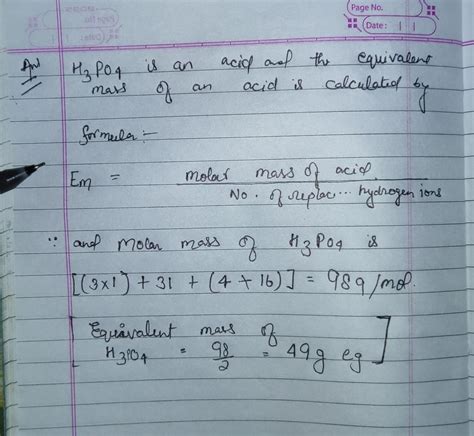 Page No.
Date: | |
Ans H3PO4 is an acid and the equivalent
mass of an acid is calculated by
formula :-
Em = molar mass of acid
No. of replac... hydrogen ions
∵ and Molar mass of H3PO4 is
[(3x1) + 31 + (4 x 16)] = 98g/mol.
[Equivalent mass of
H3PO4 = 98/2 = 49g eg]